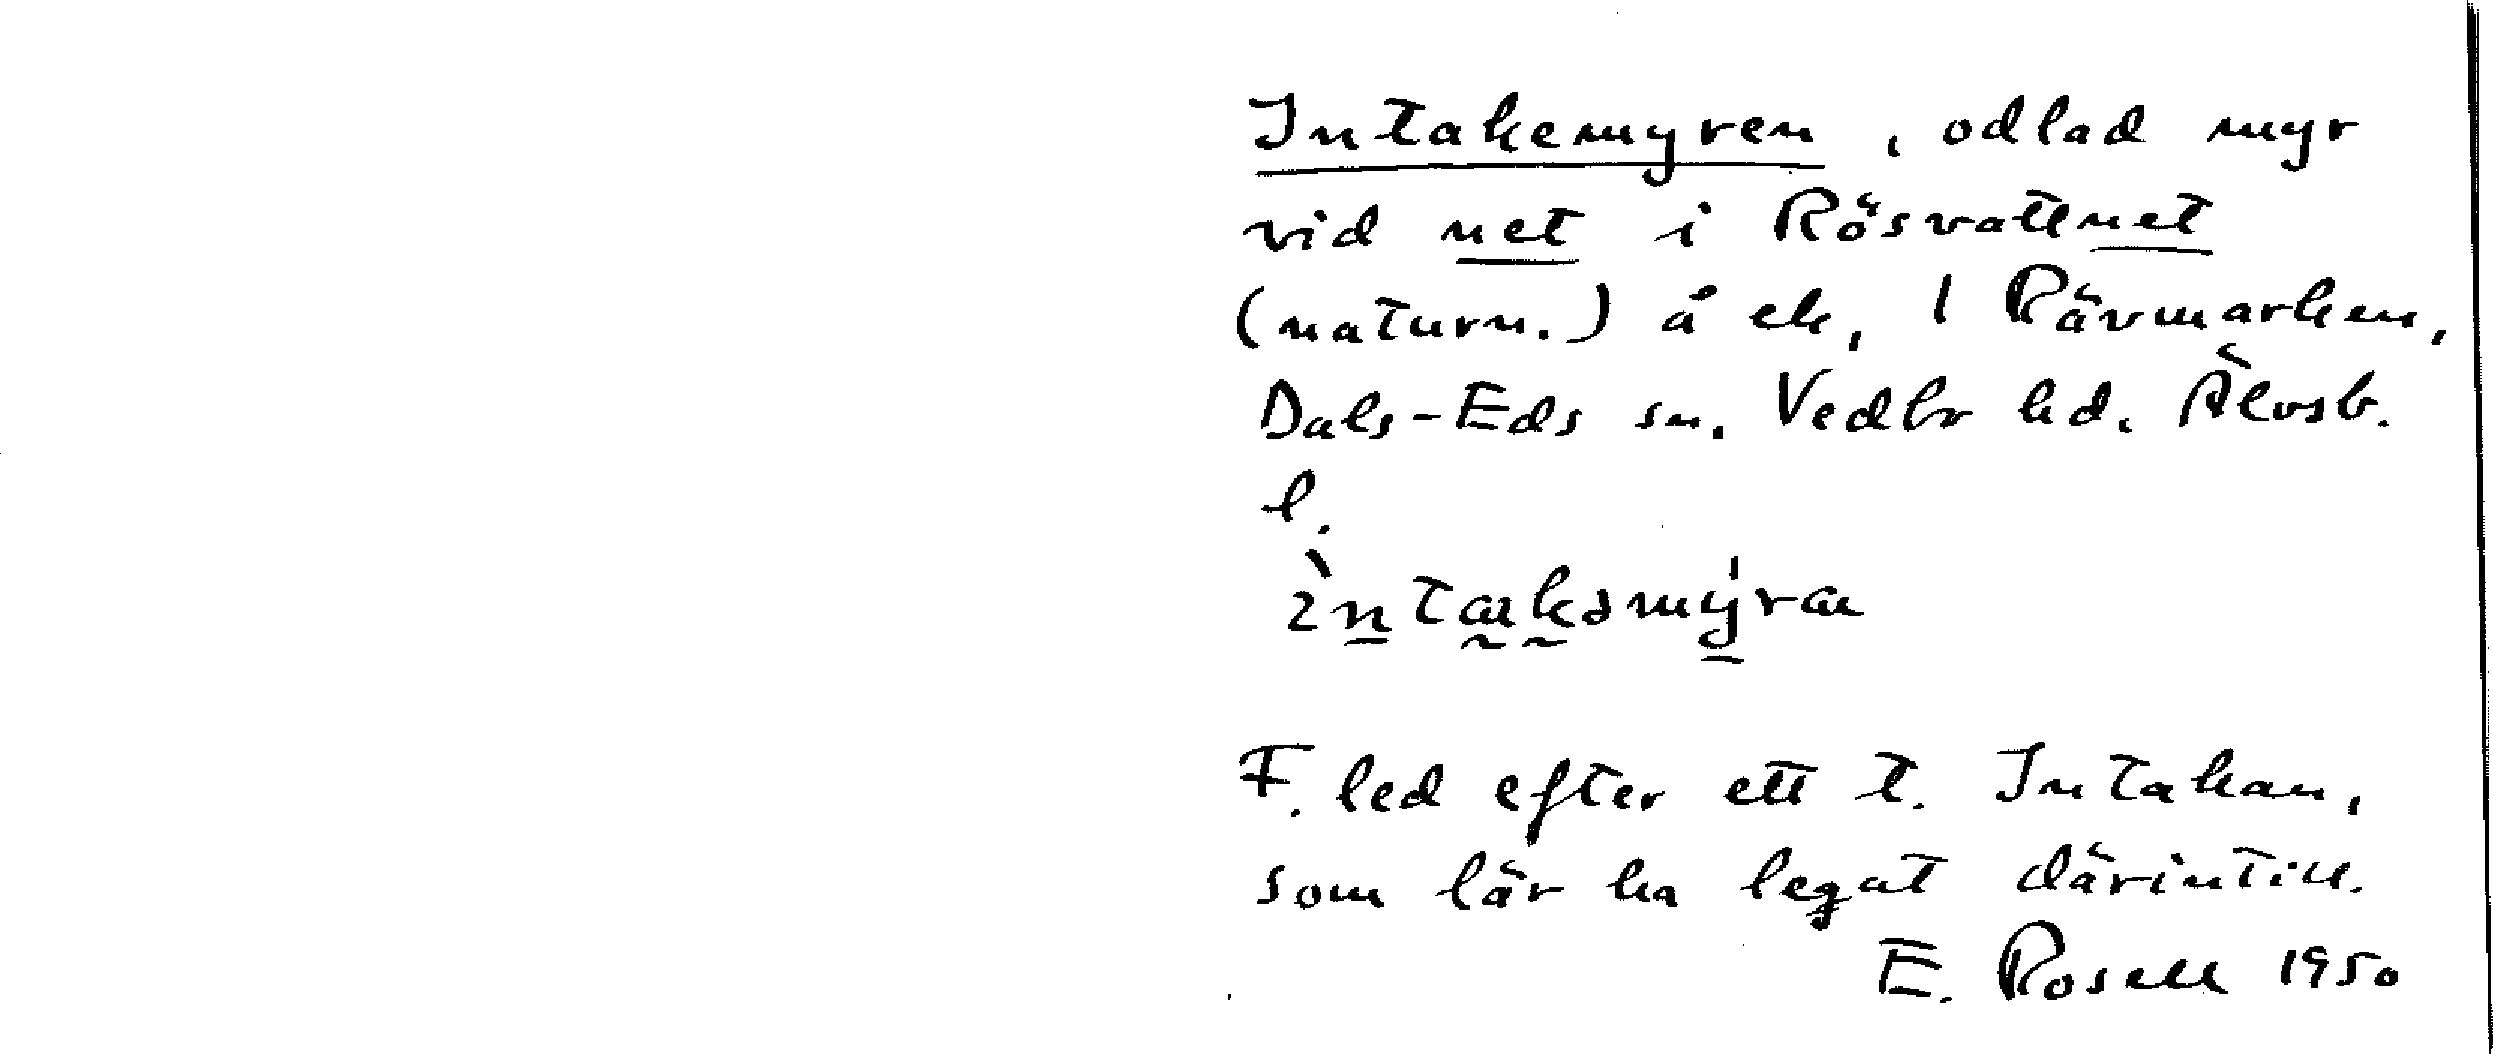 Intakemyren, odlad myr
vid net i Rösvattnet
(naturn.) å ek, 1 Rävmarken,
Dals-Eds sn. Vedbo hd. Älvsb.
l.
F. led efter ett t. Intakan,
som lär ha legat därintill.
E. Rosell 1950